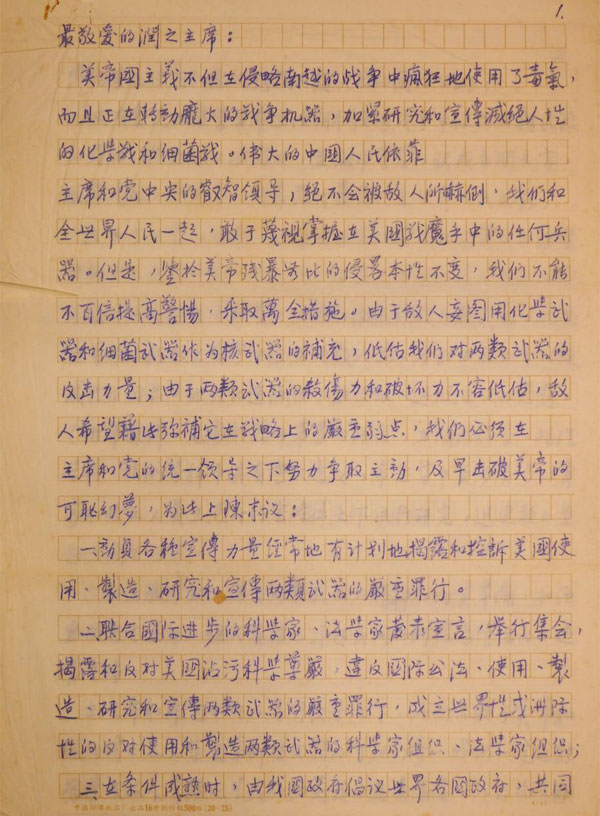 1.
最敬爱的润之主席：
美帝國主義不但在侵略南越的战争中瘋狂地使用了毒氣，
而且正在轉动龐大的战争机器，加紧研究和宣傳滅絕人性
的化学战和细菌战。偉大的中國人民依靠
主席和党中央的叡智领导，絕不会被敌人所嚇倒，我们和
全世界人民一起，敢于蔑视掌握在美國战魔手中的任何兵
器。但是，鑒於美帝残暴的侵畧本性不变，我们不能
不百倍提高警惕，采取萬全措施。由于敌人妄图用化学武
器和细菌武器作为核武器的補充，低估我们对两类武器的
反击力量；由于两类武器的殺傷力和破坏力不容低估，敌
人希望藉此弥補它在战略上的嚴重弱点，我们必须在
主席和党的统一领导之下努力争取主动，及早击破美帝的
可耻幻夢，为此上陳末议：
一动员各種宣傳力量经常地有计划地揭露和控訴美國使
用、製造、研究和宣傳两类武器的嚴重罪行。
二联合國际进步的科学家、法学家發表宣言，举行集会，
揭露和反对美國沾污科学尊嚴，違反國际公法、使用、製
造、研究和宣傳两类武器的嚴重罪行，成立世界性或洲际
性的反对使用和製造两类武器的科学家组织、法学家组织；
三在条件成熟时，由我國政府倡议世界各國政府，共同